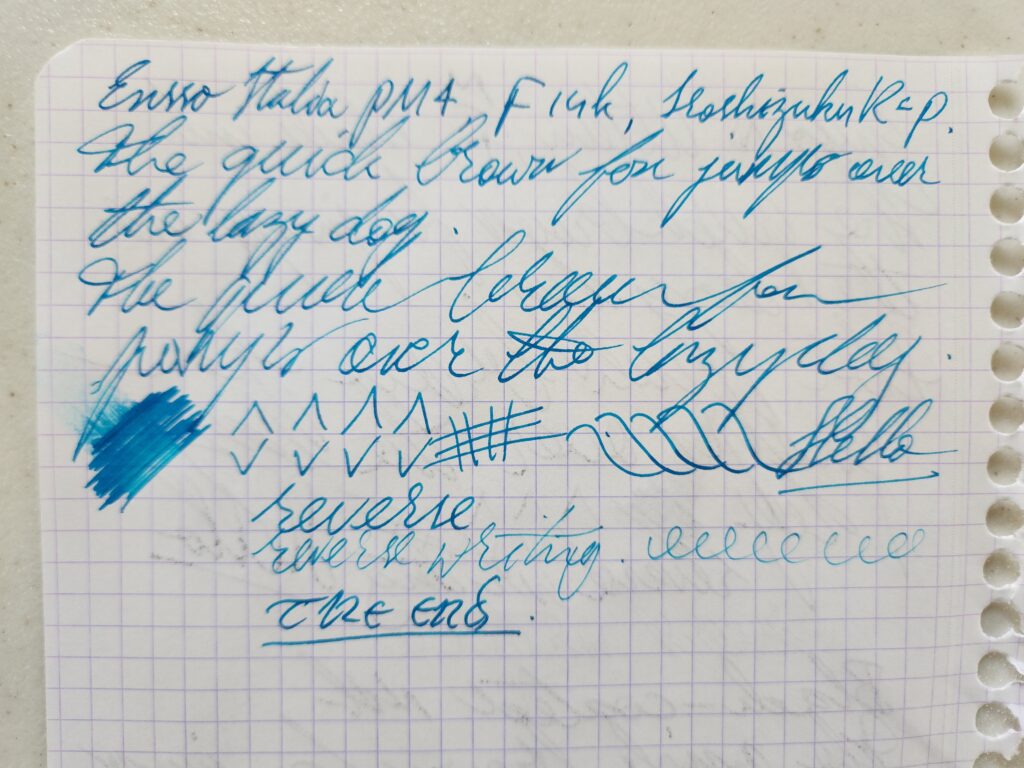 Ensso Italia PM4, F 14k, Iroshizuku K-p.
The quick brown fox jumps over
the lazy dog.
The quick brown fox
jumps over the lazy dog.
Hello
reverse
reverse writing.
THE END.